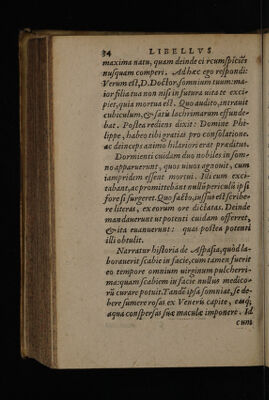 34 LIBELLVS
maxima natu, quam deinde circumspiciẽs
nusquam comperi. Ad hæc ego respondi:
Verum est, D. Doctor, somnium tuum: ma-
ior filia tua non nisi in futura uita te exci-
piet, quia mortua est. Quo audito, intrauit
cubiculum, & satis lachrimarum effunde-
bat. Postea rediens dixit: Domine Phi-
lippe, habeo tibi gratias pro consolatione.
ac deinceps animo hilariori erat præditus.
Dormienti cuidam duo nobiles in som-
no apparuerunt, quos uiuos agnouit, cum
iampridem essent mortui. Illi eum exci-
tabant, ac promittebãt nullũ periculũ ipsi
fore si surgeret. Quo facto, iussus est scribe-
re literas, ex eorum ore dictatas. Deinde
mandauerunt ut potenti cuidam offerret,
& ita euanuerunt: quas postea potenti
illi obtulit.
Narratur historia de Aspasia, quòd la-
borauerit scabie in facie, cum tamen fuerit
eo tempore omnium uirginum pulcherri-
ma: quam scabiem in facie nullus medico-
rũ curare potuit. Tandẽ ipsa somniat, se de-
bere sumere rosas ex Veneris capite, easq;
aqua conspersas suæ maculæ imponere. Id
cum